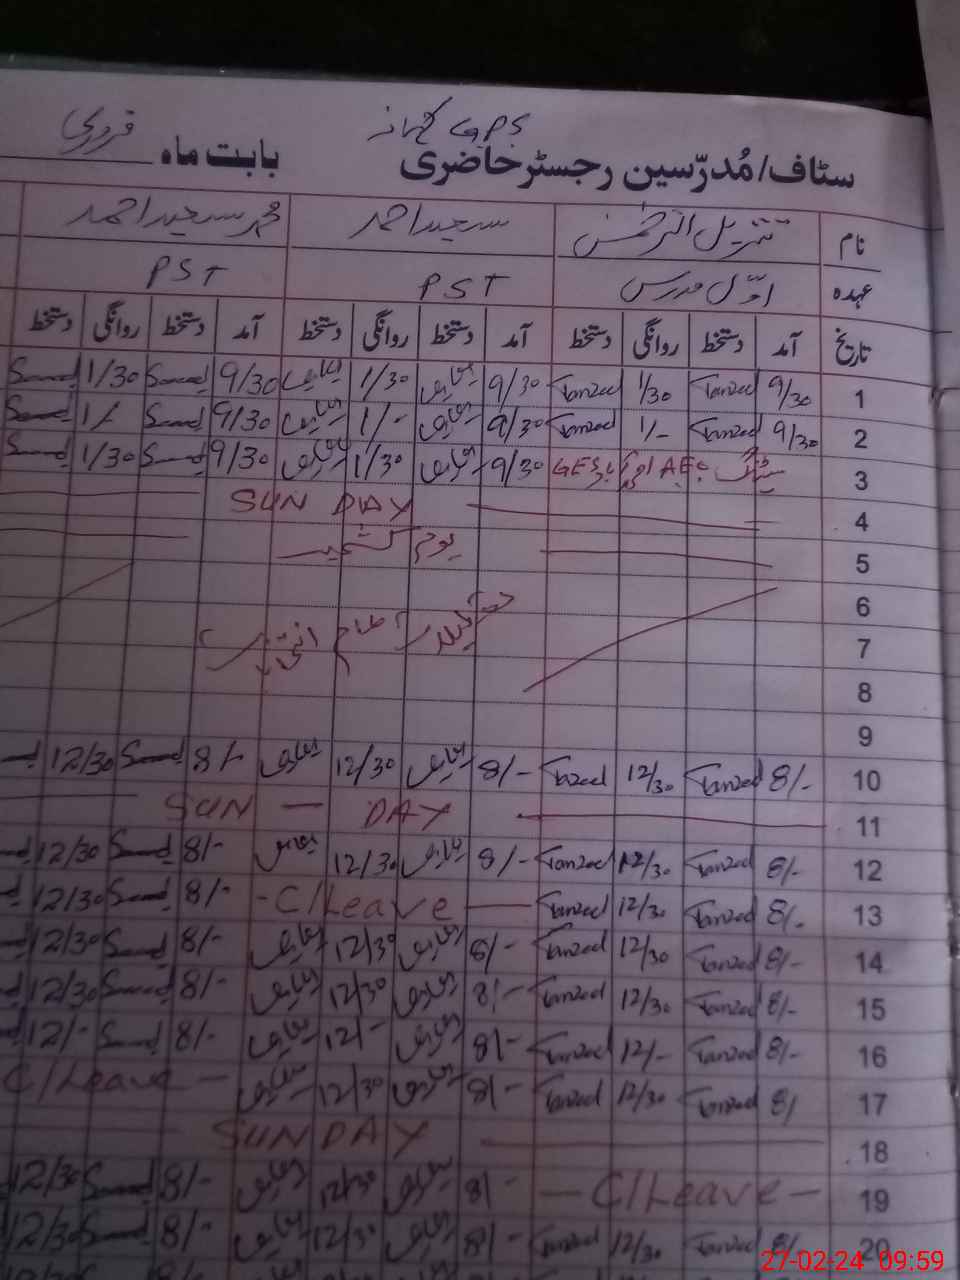 GPS
سٹاف/مُدرّسین رجسٹر حاضری بابت ماہ فروری
نام تنزیل الرحمٰن سعید احمد محمد سعید احمد
عہدہ اوّل مدرس PST PST
تاریخ آمد دستخط روانگی دستخط آمد دستخط روانگی دستخط آمد دستخط روانگی دستخط
1 9/30 Tanzeel 1/30 Tanzeel 9/30 1/30 9/30 Saeed 1/30 Saeed
2 9/30 Tanzeel 1/- Tanzeel 9/30 1/- 9/30 Saeed 1/- Saeed
3 میٹنگ AEO GES 9/30 1/30 9/30 Saeed 1/30 Saeed
4 SUN DAY
5 یوم کشمیر
6
7 عام انتخابات
8
9
10 8/- Tanzeel 12/30 Tanzeel 8/- 12/30 8/- Saeed 12/30
11 SUN — DAY
12 8/- Tanzeel 12/30 Tanzeel 8/- 12/30 8/- Saeed 12/30
13 8/- Tanzeel 12/30 Tanzeel - C/Leave — 8/- Saeed 12/30
14 8/- Tanzeel 12/30 Tanzeel 8/- 12/30 8/- Saeed 12/30
15 8/- Tanzeel 12/30 Tanzeel 8/- 12/30 8/- Saeed 12/30
16 8/- Tanzeel 12/- Tanzeel 8/- 12/- 8/- Saeed 12/-
17 8/ Tanzeel 12/30 Tanzeel 8/- 12/30 C/Leave —
18 SUNDAY
19 — C/Leave — 8/- 12/30 8/- Saeed 12/30
20 8/- Tanzeel 12/30 Tanzeel 8/- 12/30 8/- Saeed 12/30
27-02-24 09:59